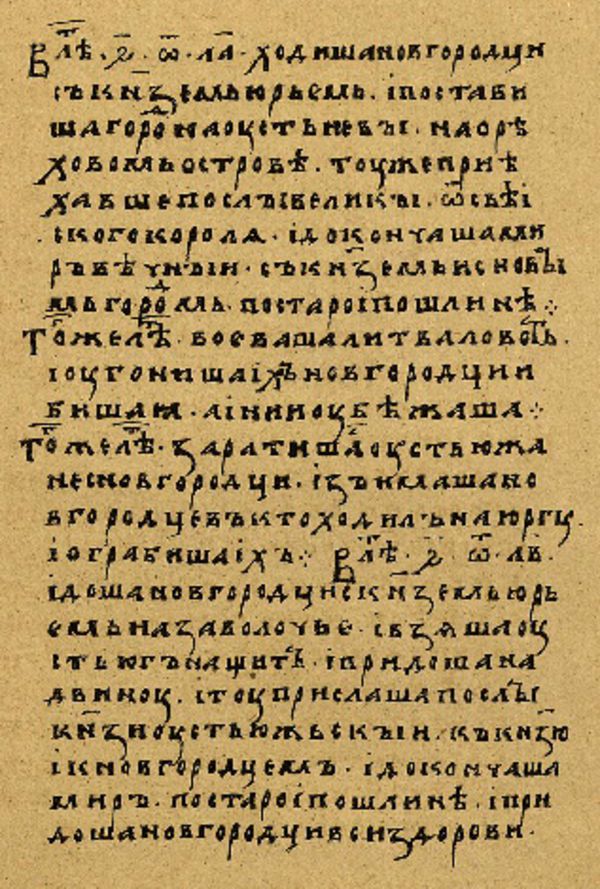 В лⷮѣ · ҂ѕ҃ · ѿ · ла҃ · ходиша новгородци
съ кн҃земь юрьемь · і постави
ша гороⷣ на оусть невы · на орѣ
ховомь островѣ · тоу же приѣ
хавше послы великы · ѿ свѣі
ского королѧ · і докончаша ми
ръ вѣчныи · съ кн҃земь и с новы
мь гороⷣмь · по старои пошлинѣ ⁘
Тоⷢ҇ же леⷮѣ · воеваша литва ловоть ·
і оугониша іхъ новгородци и
биша ꙗ · а інии оубѣжаша ⁘
Тоⷢ҇ же леⷮѣ · заратишаⷭ оустьюжа
не с новгородци · ізъимаша но
вгородцевъ кто ходилъ на юргу ·
і ограбиша іхъ ⁘ В лⷮѣ · ҂ѕ҃ · ѿ · лв҃ ·
ідоша новгородци с кн҃земь юрь
емь на заволочье · і взѧша оу
стьюгъ на щитъ · і придоша на
двиноу · і тоу прислаша послы
кн҃зи оустьюжьскыи · къ кн҃зю
і к новгородцемъ · і докончаша
миръ · по староі пошлинѣ · і при
доша новгородци вси здорови ·